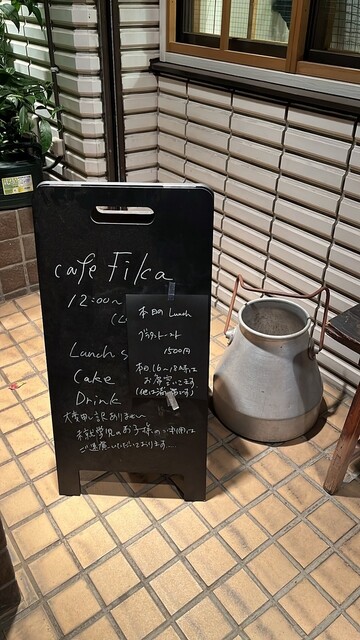 cafe Fika
12:00~
Lunch s
Cake
Drink
大変申し訳ありません
未就学児のお子様のご利用は
ご遠慮いただいております
本日の Lunch
グラタントースト
1500円
本日16〜18時に
お席空いてます
(他は満席です)